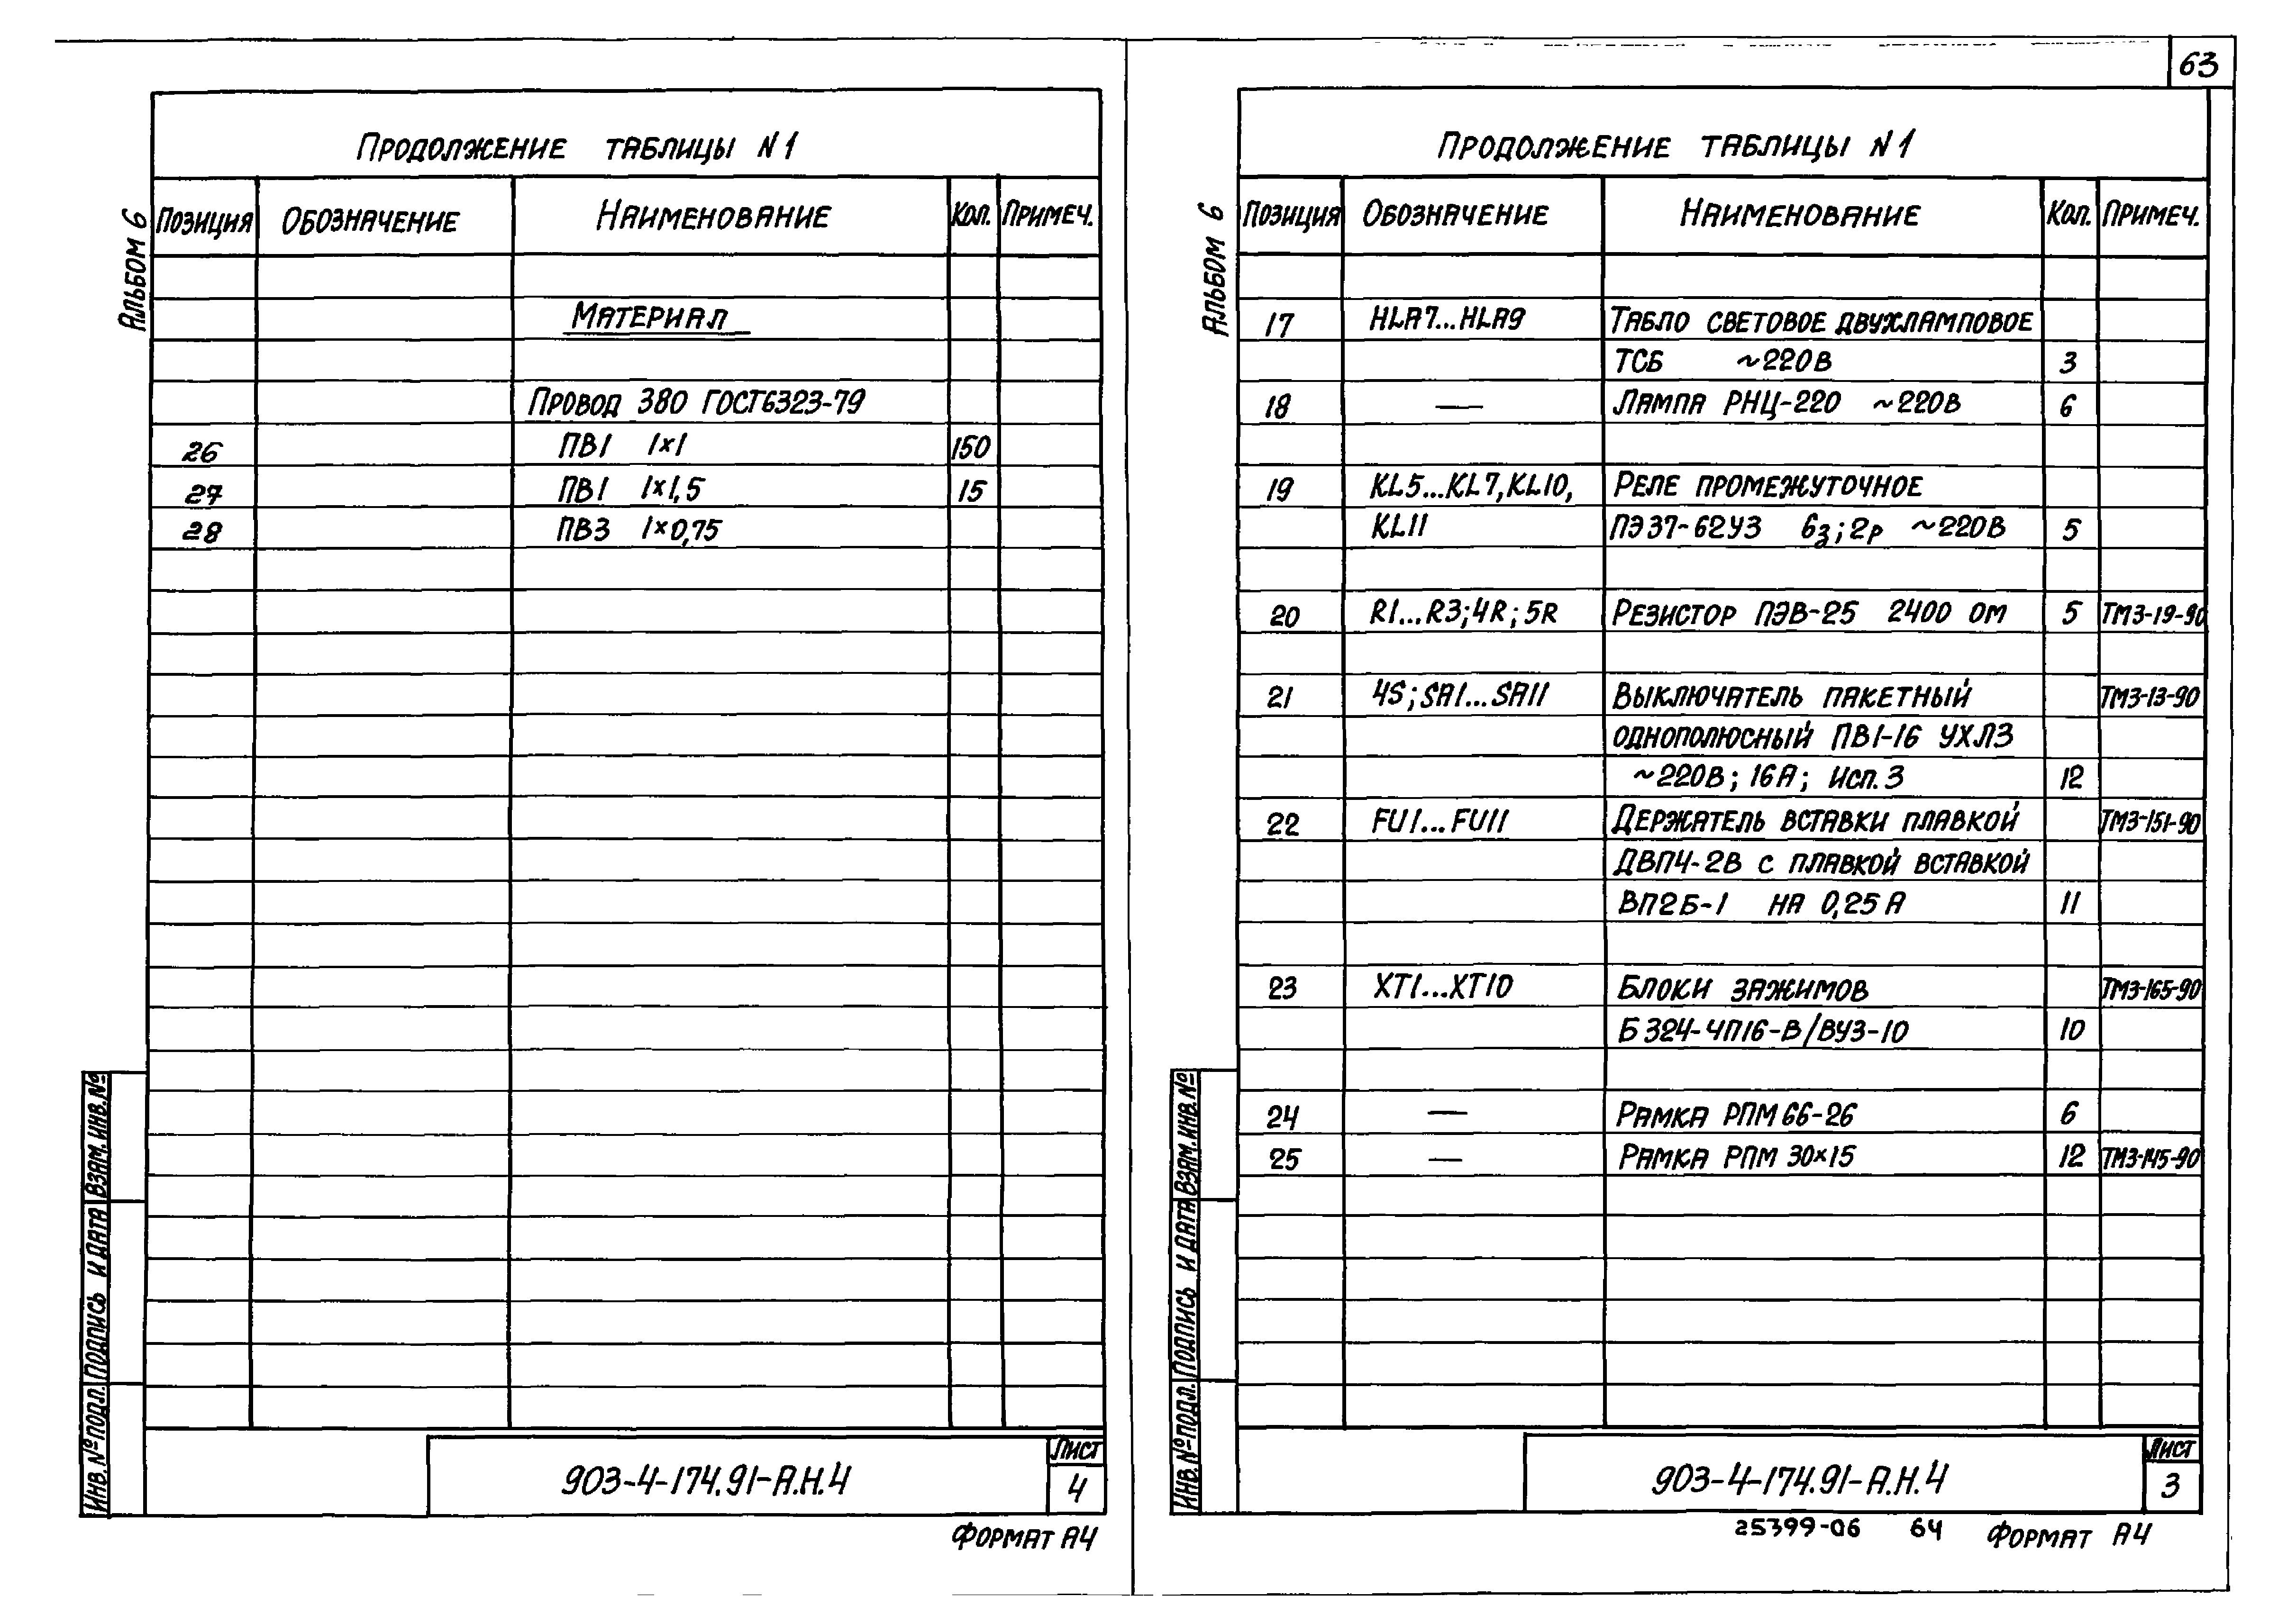 63
Продолжение таблицы N1
Альбом 6
Позиция Обозначение Наименование Кол. Примеч.
Материал
Провод 380 ГОСТ6323-79
26 ПВ1 1×1 150
27 ПВ1 1×1,5 15
28 ПВ3 1×0,75
Взам. инв. №
Подпись и дата
Инв. № подл.
903-4-174.91-А.Н.4
Лист
4
Формат А4
Продолжение таблицы N1
Альбом 6
Позиция Обозначение Наименование Кол. Примеч.
17 HLA7...HLA9 Табло световое двухламповое
ТСБ ~220В 3
18 — Лампа РНЦ-220 ~220В 6
19 KL5...KL7, KL10, Реле промежуточное
KL11 ПЭ37-62У3 6з; 2р ~220В 5
20 R1...R3; 4R; 5R Резистор ПЭВ-25 2400 Ом 5 ТМ3-19-90
21 4S; SA1...SA11 Выключатель пакетный ТМ3-13-90
однополюсный ПВ1-16 УХЛ3
~220В; 16А; Исп. 3 12
22 FU1...FU11 Держатель вставки плавкой ТМ3-151-90
ДВП4-2В с плавкой вставкой
ВП2Б-1 на 0,25А 11
23 XT1...XT10 Блоки зажимов ТМ3-165-90
Б324-4П16-В/ВУ3-10 10
24 — Рамка РПМ 66-26 6
25 — Рамка РПМ 30×15 12 ТМ3-145-90
Взам. инв. №
Подпись и дата
Инв. № подл.
903-4-174.91-А.Н.4
Лист
3
25399-06 64 Формат А4